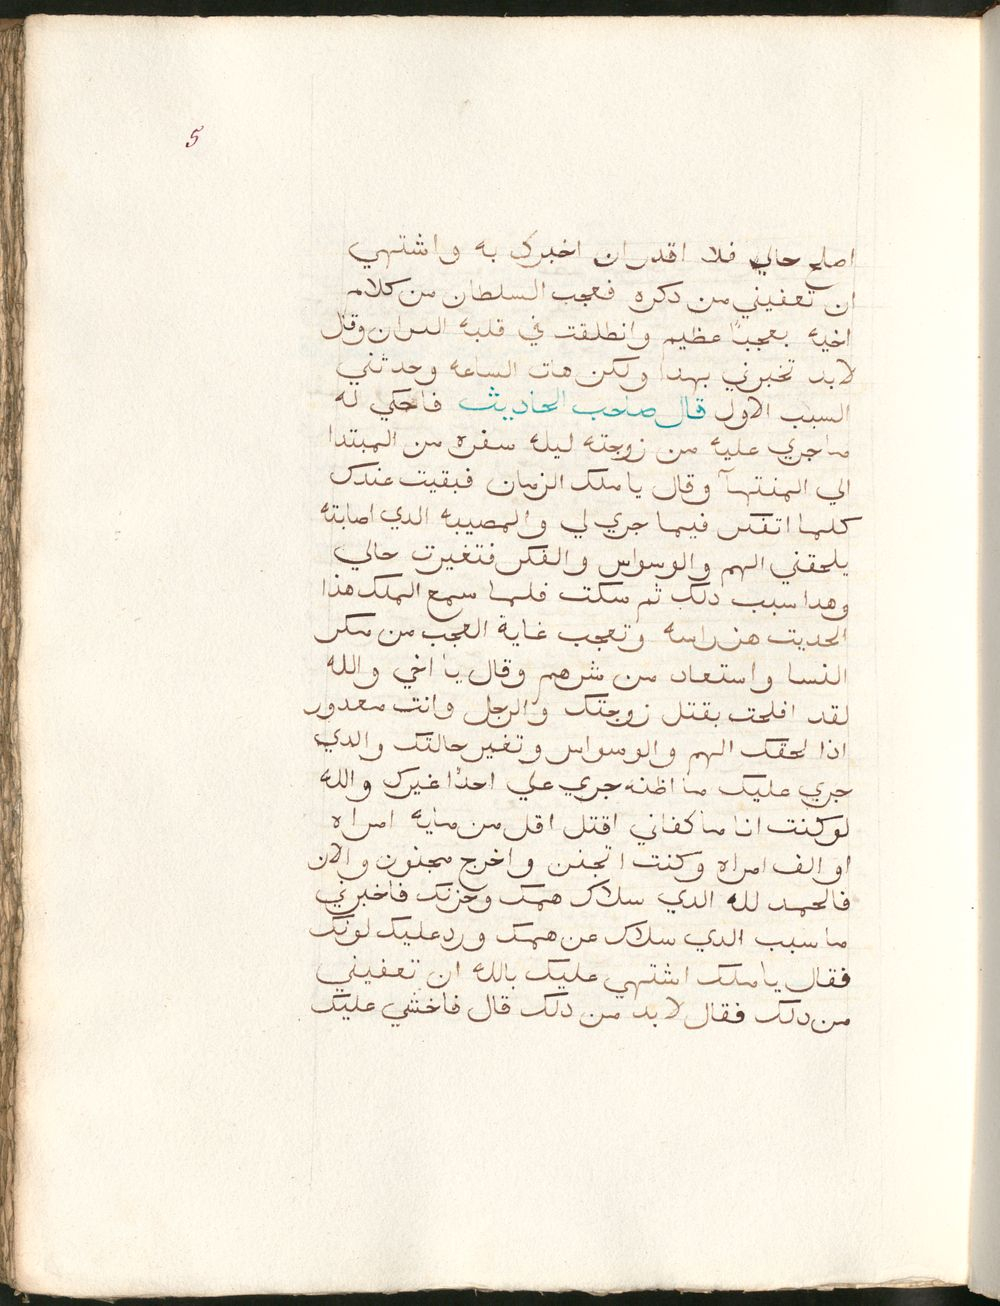 5
اصلح حالي فلا اقدر ان اخبرك به واشتهي
ان تعفيني من دكره فعجب السلطان من كلامه
اخيه بعجبًا عظيم وانطلقت في قلبه النيران وقال
لابد تخبرني بهدا ولكن هات الساعه وحدثني
السبب الاول قال صاحب الحاديث فاحكي له
ماجري عليه من زوجته ليله سفره من المبتدا
الي المنتهآ وقال ياملك الزمان فبقيت عندك
كلما اتفكر فيما جري لي والمصيبه الدي اصابته
يلحقني الهم والوسواس والفكر فتغيرت حالي
وهدا سبب دلك ثم سكت فلما سمع الملك هذا
الحديت هز راسه وتعجب غاية العجب من مكر
النسا واستعاد من شرهم وقال يا اخي والله
لقد افلحت بقتل زوجتك والرجل وانت معدور
اذا لحقك الهم والوسواس وتغير حالتك والدي
جري عليك ما اظنه جري علي احدًا غيرك والله
لوكنت انا ماكفاني اقتل اقل من مايه امراه
او الف امراه وكنت اتجنن واخرج مجنون والان
فالحمد لله الدي سلاك همك وحزنك فاخبرني
ما سبب الدي سلاك عن همك ورد عليك لونك
فقال ياملك اشتهي عليك بالله ان تعفيني
من دلك فقال لابد من دلك قال فاخشي عليك